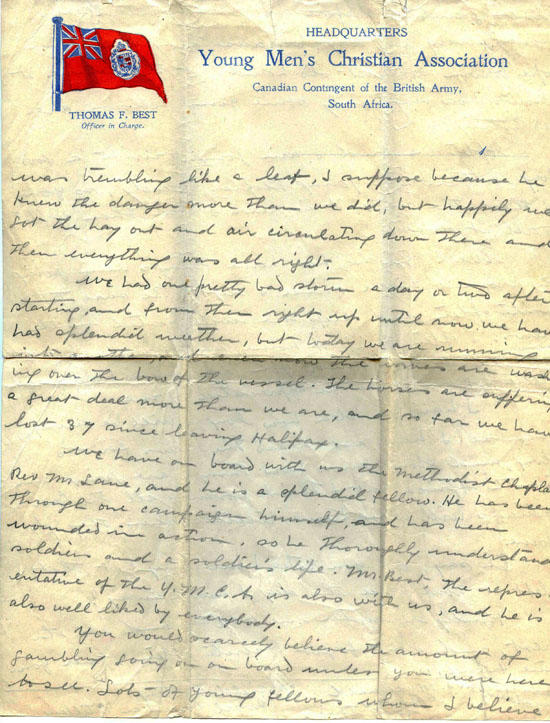 HEADQUARTERS
Young Men's Christian Association
Canadian Contingent of the British Army,
South Africa.
THOMAS F. BEST
Officer in Charge.
was trembling like a leaf, I suppose because he
knew the danger more than we did, but happily we
got the hay out and air circulating down there and
then everything was all right.
We had one pretty bad storm a day or two after
starting, and from then right up until now we have
had splendid weather, but today we are running
now the waves are wash
ing over the bow of the vessel. The horses are suffering
a great deal more than we are, and so far we have
lost 37 since leaving Halifax.
We have on board with us the Methodist Chapla
Rev Mr Lane, and he is a splendid fellow. He has been
through one campaign himself, and has been
wounded in action, so he thoroughly understand
soldiers and a soldier's life. Mr. Best, the repres
entative of the Y.M.C.A. is also with us, and he is
also well liked by everybody.
You would scarcely believe the amount of
gambling going on on board unless you were here
to see. Lots of young fellows whom I believe